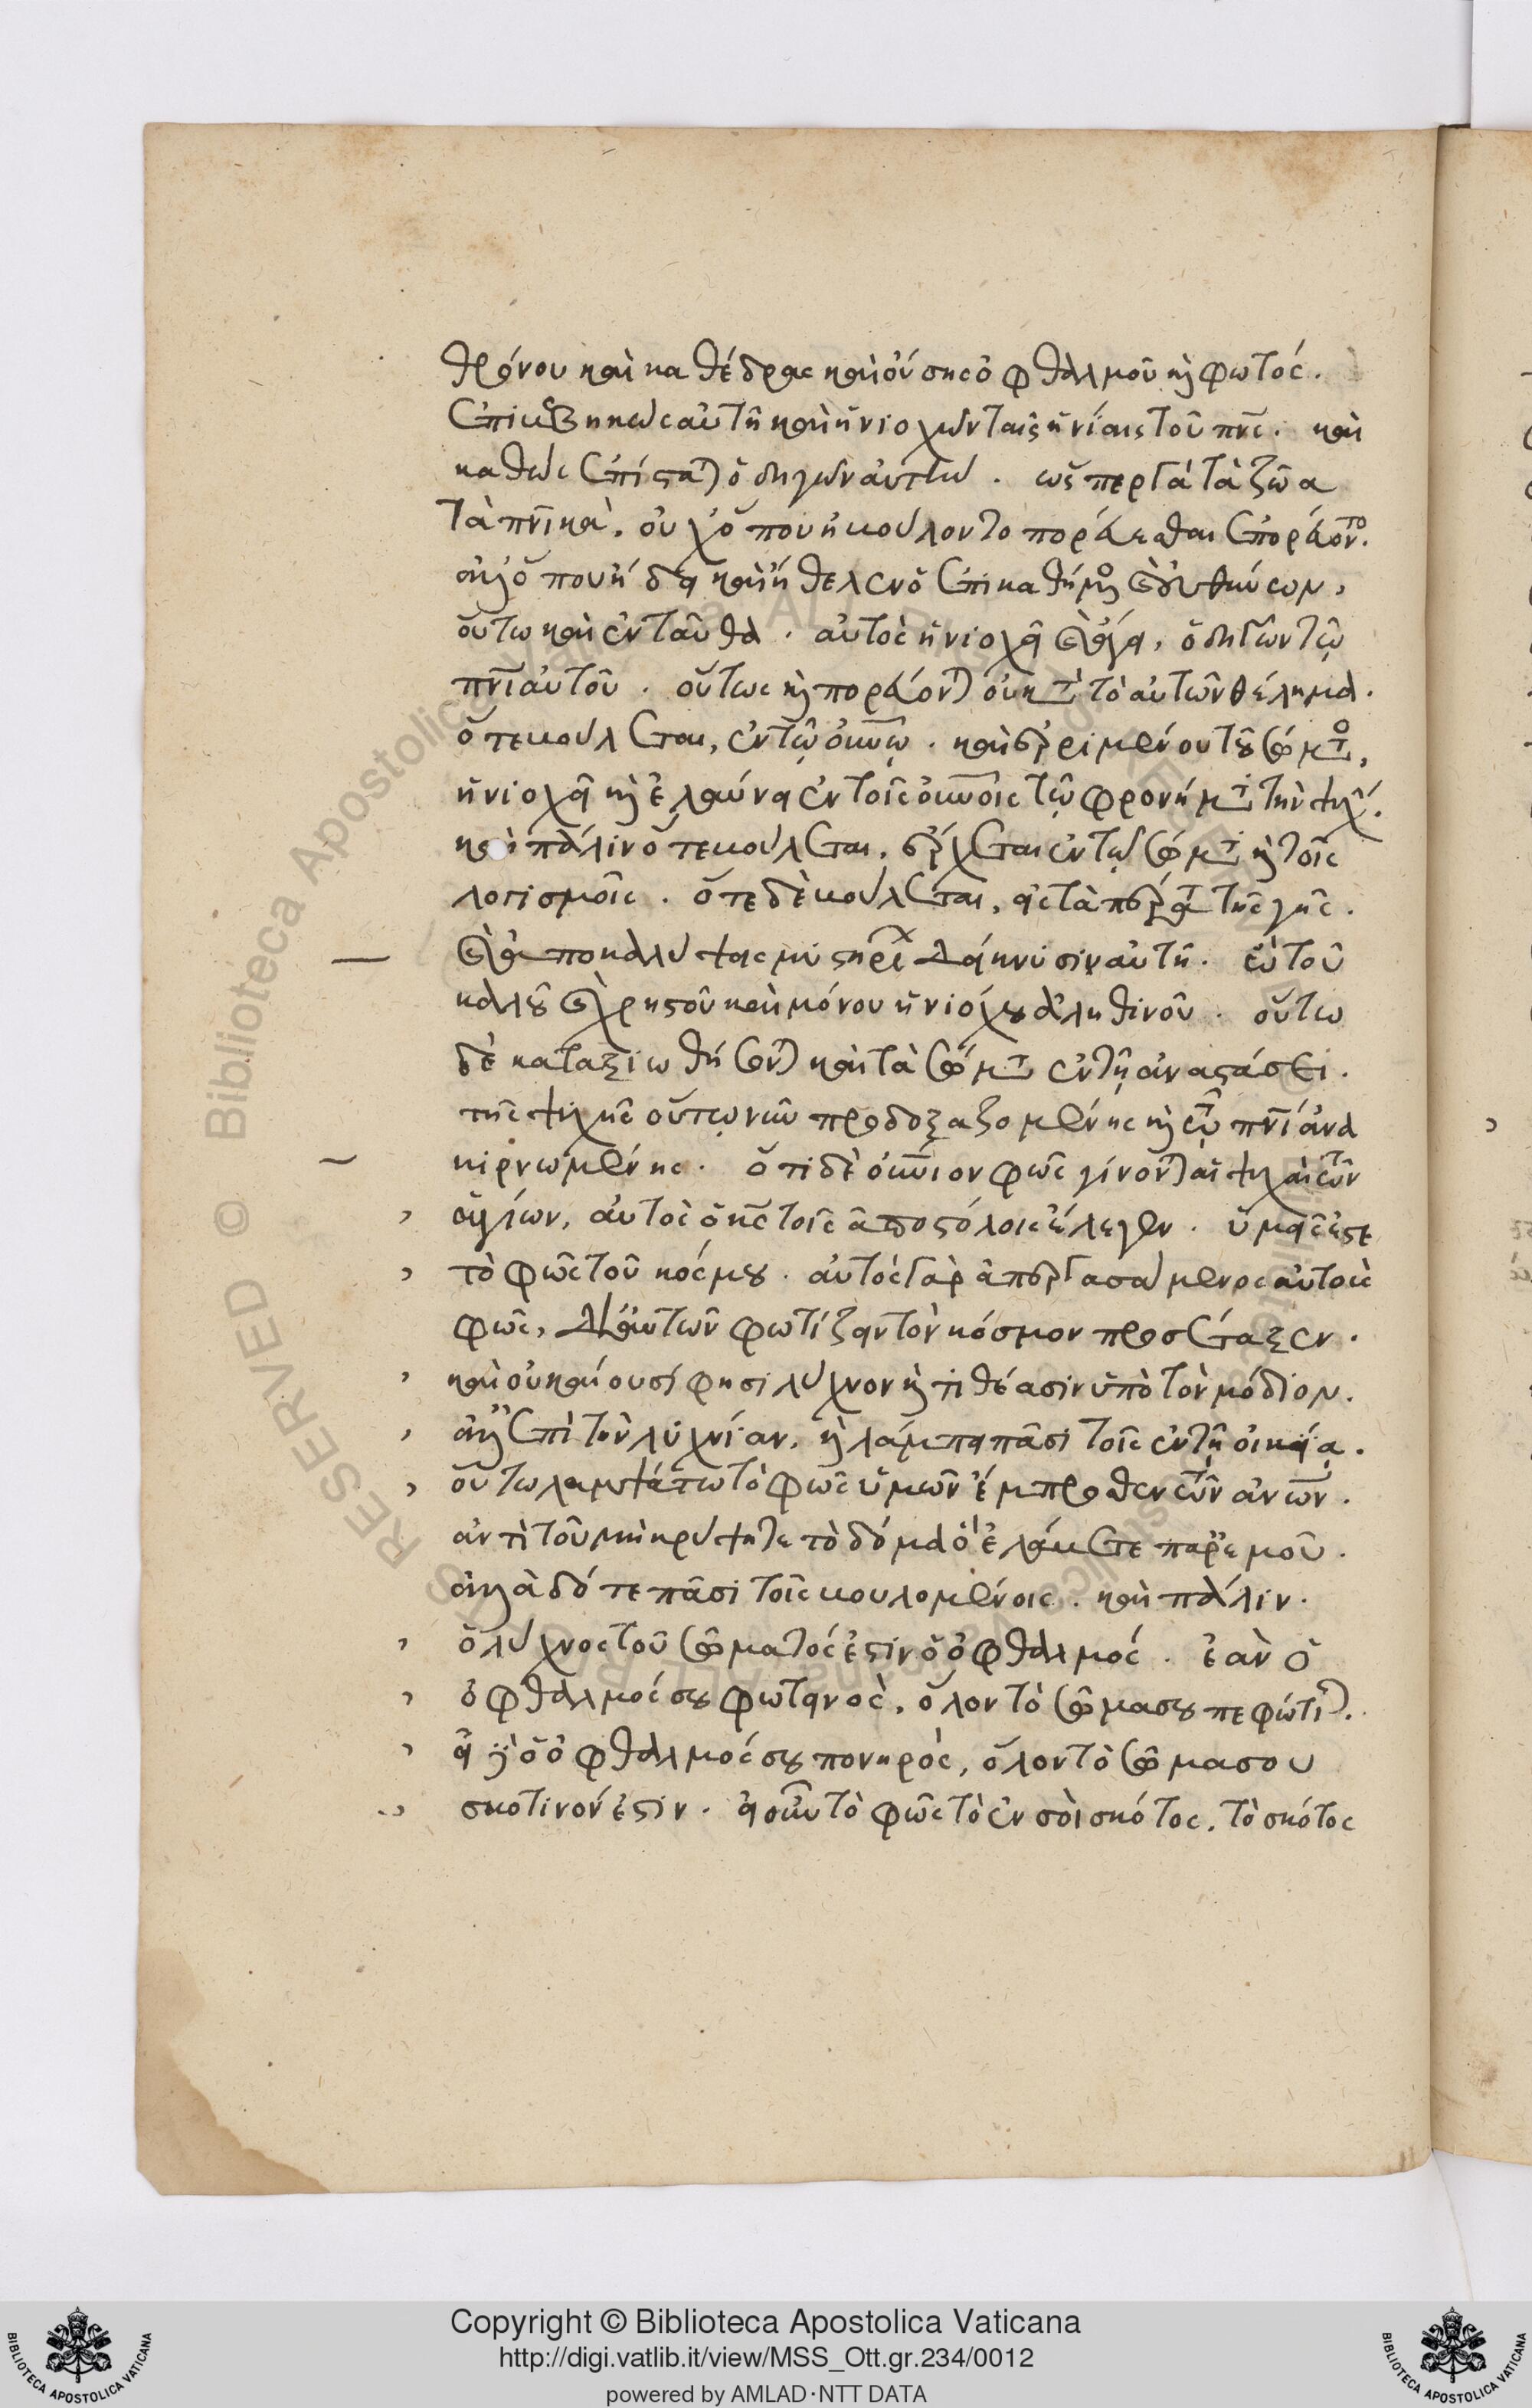 θρόνου καὶ καθέδρας καὶ οὔσης ὀφθαλμοῦ καὶ φωτός.
ἐπιβεβηκὼς αὐτῆ καὶ ἡνιοχῶν ταῖς ἡνίαις τοῦ πνς. καὶ
καθὼς ἐπίσταται ὁδηγῶν αὐτήν. ὥσπερ γὰ τὰ ζῶα
τὰ πνικὰ, οὐχ ὅπου ἠβούλοντο πορεύεσθαι ἐπορεύοντο.
ἀλλ' ὅπου ἤδει καὶ ἤθελεν ὁ ἐπικαθήμενος καὶ διευθύνων,
οὕτω καὶ ἐνταῦθα. αὐτὸς ἡνιοχεῖ καὶ ἄγει, ὁδηγῶν τῷ
πνι αὐτοῦ. οὕτως καὶ πορεύονται οὐ κατὰ τὸ αὐτῶν θέλημα.
ὅτε βούλεται, ἐν τῷ οὐνῷ. καὶ ἐρριμένου τοῦ σώματος,
ἡνιοχεῖ καὶ ἐλαύνει ἐν τοῖς οὐνοῖς τῷ φρονήματι τὴν ψυχήν.
καὶ πάλιν ὅτε βούλεται, ἔρχεται ἐν τῷ σώματι καὶ τοῖς
λογισμοῖς. ὅτε δὲ βούλεται, εἰς τὰ πέρατα τῆς γῆς.
καὶ ἀποκαλύψεις μυστηρίων δείκνυσιν αὐτῆ. ὢ τοῦ
καλοῦ καὶ χρηστοῦ καὶ μόνου ἡνιόχου ἀληθινοῦ. οὕτω
δὲ καταξιωθήσονται καὶ τὰ σώματα ἐν τῇ ἀναστάσει.
τῆς ψυχῆς οὕτω νῦν προδοξαζομένης καὶ τῷ πνι ἀνα
κιρνωμένης. ὅτι δὲ οὐνιον φῶς γίνονται αἱ ψυχαὶ τῶν
ἁγίων, αὐτὸς ὁ κς τοῖς ἀποστόλοις ἔλεγεν. ὑμεῖς ἐστὲ
τὸ φῶς τοῦ κόσμου. αὐτὸς γὰρ ἀπεργασάμενος αὐτοὺς
φῶς, δι' αὐτῶν φωτίζειν τὸν κόσμον προσέταξεν.
καὶ οὐ καίουσί φησι λύχνον καὶ τιθέασιν ὑπὸ τὸν μόδιον.
ἀλλ' ἐπὶ τὴν λυχνίαν, καὶ λάμπει πᾶσι τοῖς ἐν τῇ οἰκίᾳ.
οὕτω λαμψάτω τὸ φῶς ὑμῶν ἔμπροσθεν τῶν ἀνων.
ἀντὶ τοῦ μὴ κρύψητε τὸ δόμα ὃ ἐλάβετε παρ' ἐμοῦ.
ἀλλὰ δότε πᾶσι τοῖς βουλομένοις. καὶ πάλιν.
ὁ λύχνος τοῦ σώματός ἐστιν ὁ ὀφθαλμός. ἐὰν ὁ
ὀφθαλμός σου φωτεινὸς, ὅλον τὸ σῶμα σου πεφώτισται.
εἰ δὲ ὁ ὀφθαλμός σου πονηρὸς, ὅλον τὸ σῶμα σου
σκοτινόν ἐστιν. εἰ οὖν τὸ φῶς τὸ ἐν σοὶ σκότος, τὸ σκότος
Copyright © Biblioteca Apostolica Vaticana
http://digi.vatlib.it/view/MSS_Ott.gr.234/0012
powered by AMLAD·NTT DATA